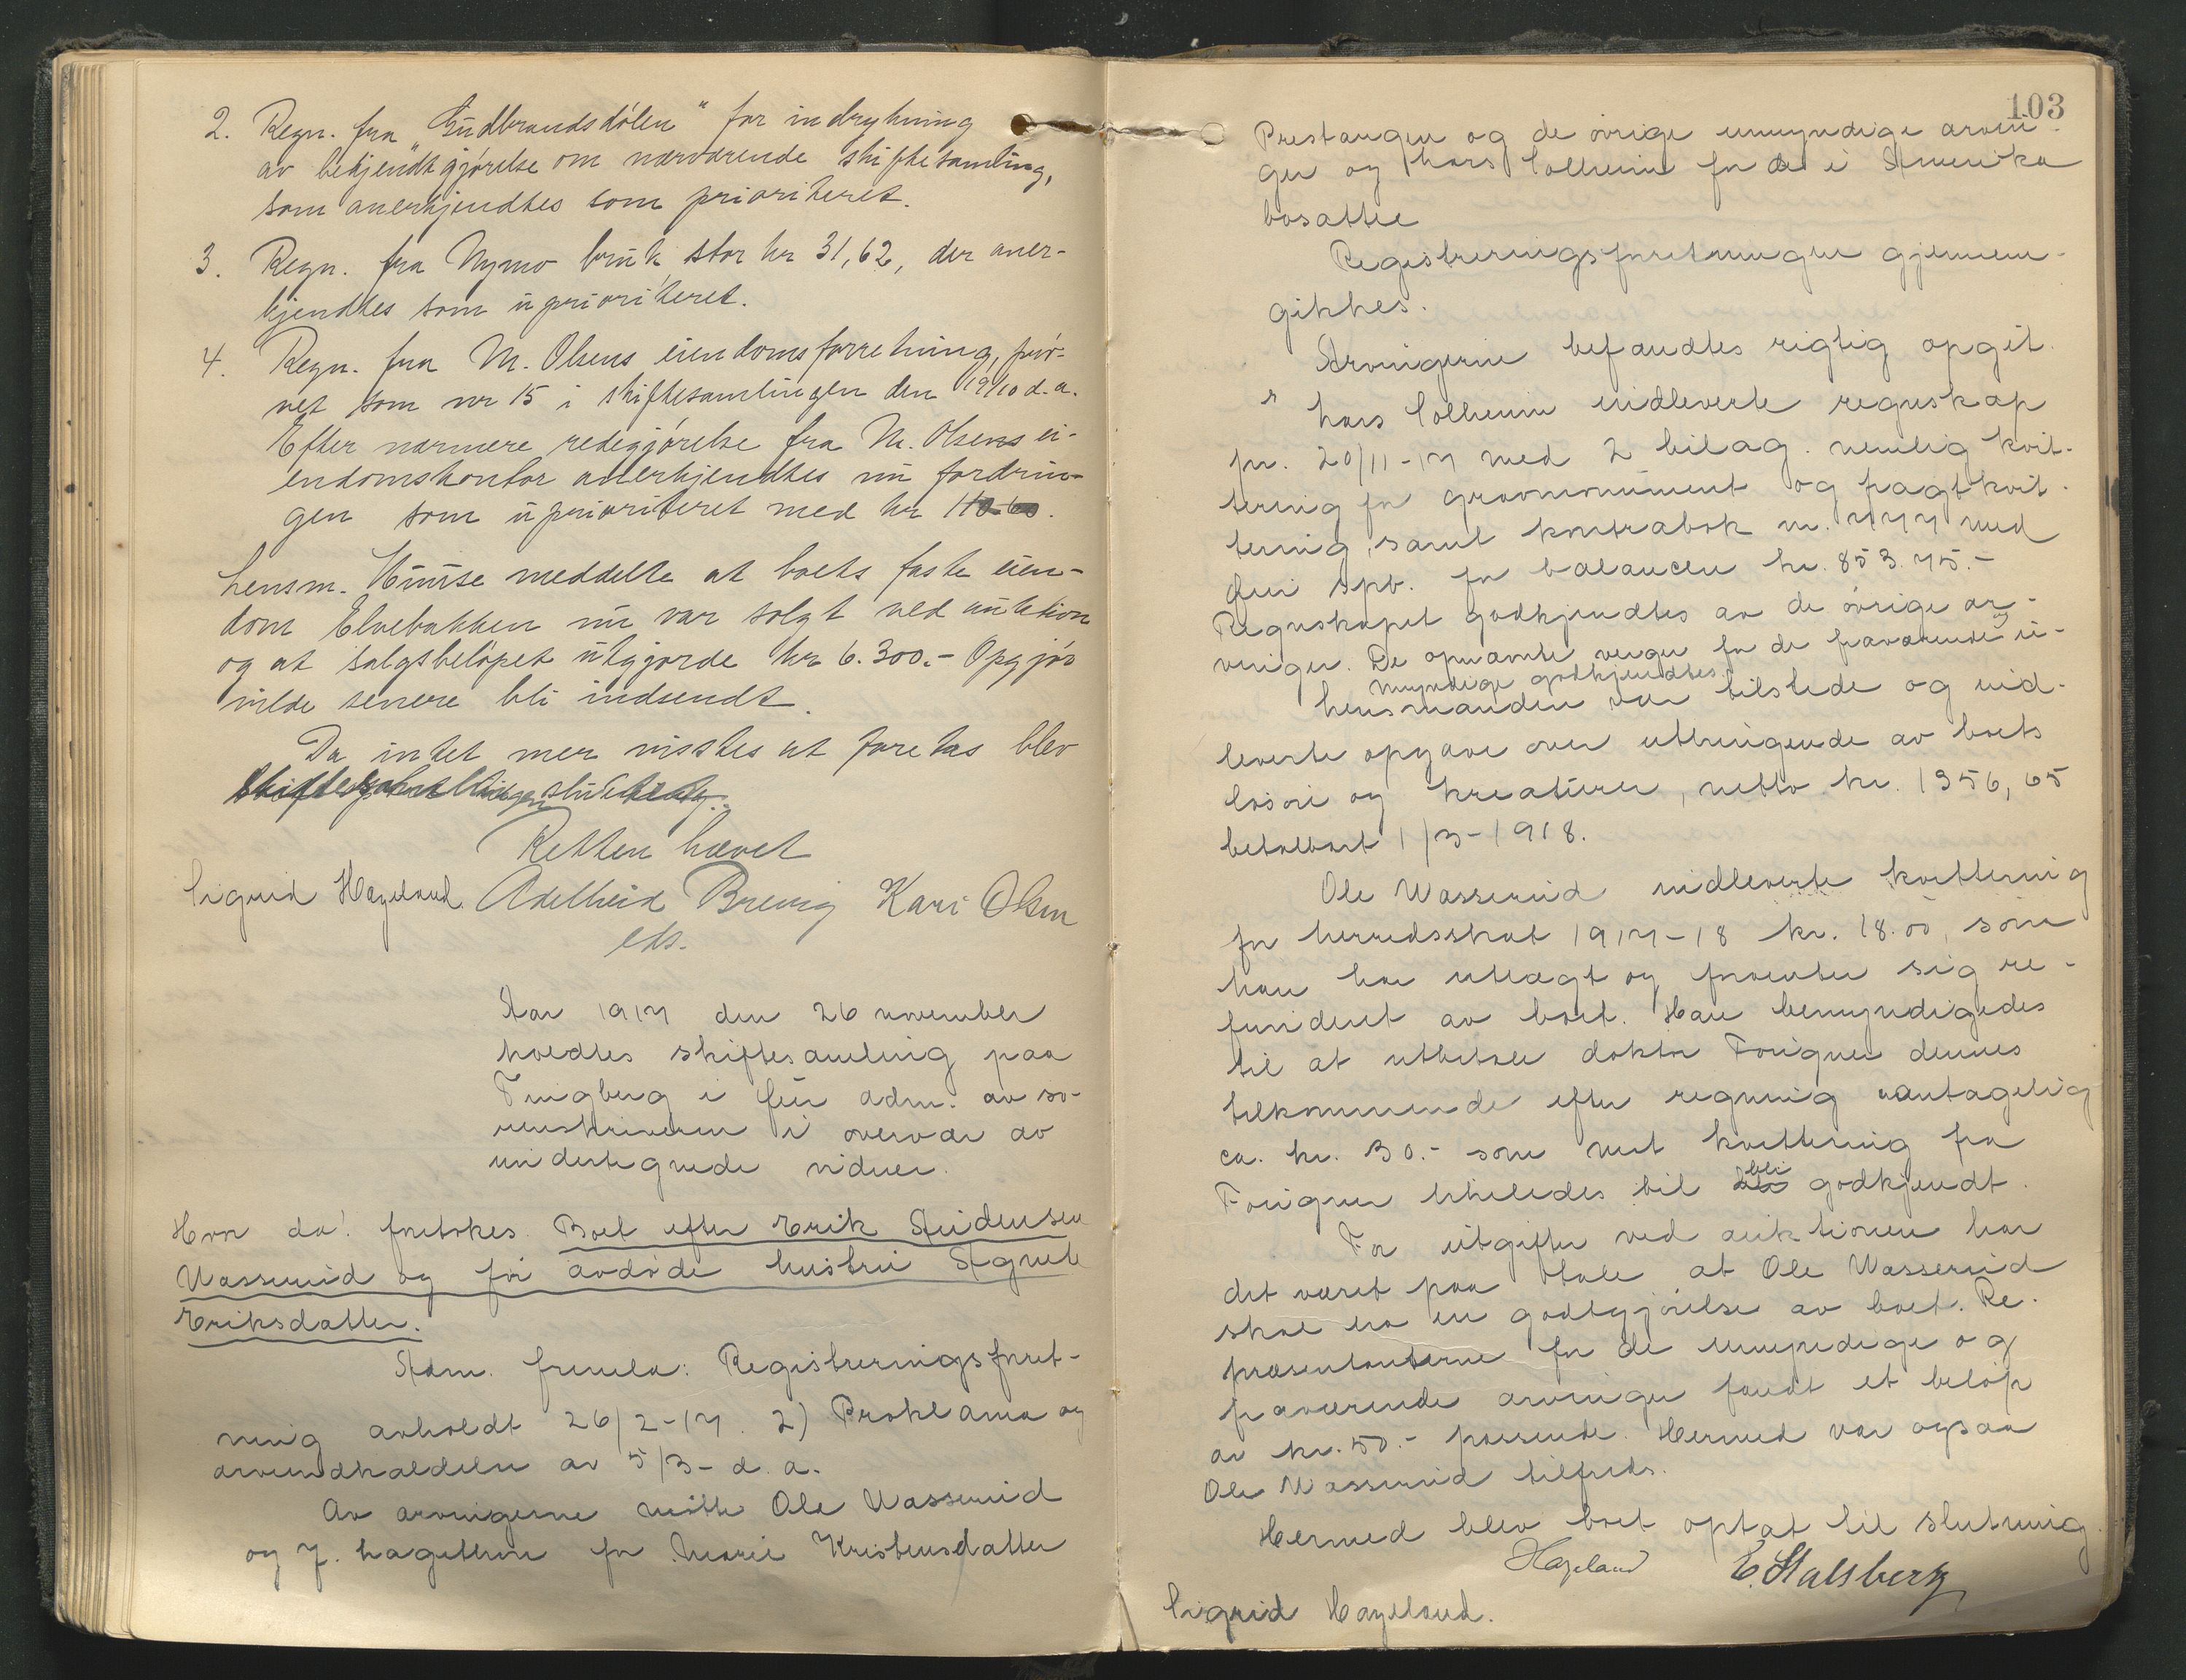 2. Regn. fra "Gudbrandsdølen" for indrykning
av bekjendtgjørelse om nærværende skiftesamling,
som anerkjendtes som prioriteret.
3. Regn. fra Nymo bruk, stor kr 31,62, der aner-
kjendtes som uprioriteret.
4. Regn. fra M. Olsens eiendomsforretning, præv-
net som nr 15 i skiftesamlingen den 19/10 d. a.
Efter nærmere redegjørelse fra M. Olsens ei-
endomskontor anerkjendtes nu fordrin-
gen som uprioriteret med kr
Lensm. Huuse meddelte at boets faste eien-
dom Elvebakken nu var solgt ved auktion
og at salgsbeløpet utgjorde kr 6.300.- Opgjør
vilde senere bli indsendt.
Da intet mer visstes at foretas blev
skiftesamlingen sluttet.
Retten hævet
Sigrid Hageland. Adelheid Brevig Kari Olsen
Aar 1917 den 26 november
holdtes skiftesamling paa
Tingberg i Øier adm. av so-
renskriveren i overvær av
undertegnede vidner.
Hvor da! foretokes Boet efter Erik Amundsen
Wasserud og før avdøde hustru Agnete
Eriksdatter.
Adm. fremla: Registreringsforret-
ning avholdt 26/2-17. 2) Proklama og
arveindkaldelse av 5/3- d. a.
Av arvingerne møtte Ole Wasserud
og J. for Marie Kristensdatter
103
Prestangen og de øvrige umyndige arvin-
ger og Lars Solheim for de i Amerika
bosatte
Registreringsforretningen gjennem-
gikkes.
Arvingerne befandtes rigtig opgit.
Lars Solheim indleverte regnskap
pr. 20/11-17 med 2 bilag. nemlig kvit-
tering for gravmonument og fragtkvit-
tering, samt kontrabok nr. 777 med
Øier spb. for balancen kr. 853.75.-
Regnskapet godkjendtes av de øvrige ar-
vinger. De opnævnte verger for de fraværende og u-
myndige godkjendtes.
Lensmanden var tilstede og ind-
leverte opgave over utbringende av boets
løsøre og kreaturer, netto kr. 1356,65
betalbart 1/3-1918.
Ole Wasserud indleverte kvittering
for herredsskat 1917-18 kr. 18.00, som
han har utlægt og forventer sig re-
funderet av boet. Han bemyndigedes
til at utbetale doktor Forigner dennes
tilkommende efter regning antagelig
ca. kr. 30.- som mot kvittering fra
Forigner vil bli godkjendt.
For utgifter ved auktionen har
det været paa tale at Ole Wasserud
skal ha en godtgjørelse av boet. Re-
præsentanterne for de umyndige og
fraværende arvinger fandt et beløp
av kr. 50.- passende. Hermed var ogsaa
Ole Wasserud tilfreds.
Hermed blev boet optat til slutning.
Hageland E. Stalsberg
Sigrid Hageland.